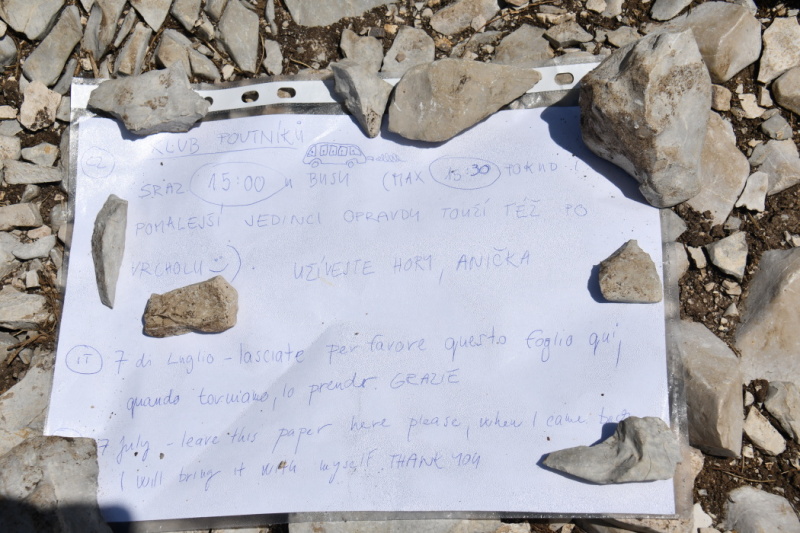 KLUB POUTNÍKŮ
CZ SRAZ 15:00 u BUSU (MAX 15:30 POKUD I
POMALEJŠÍ JEDINCI OPRAVDU TOUŽÍ TÉŽ PO
VRCHOLU). UŽÍVEJTE HORY, ANIČKA
IT 7 di Luglio - lasciate per favore questo foglio qui,
quando torniamo, lo prendo. GRAZIE
7 July - leave this paper here please, when I came
I will bring it with myself. THANK YOU